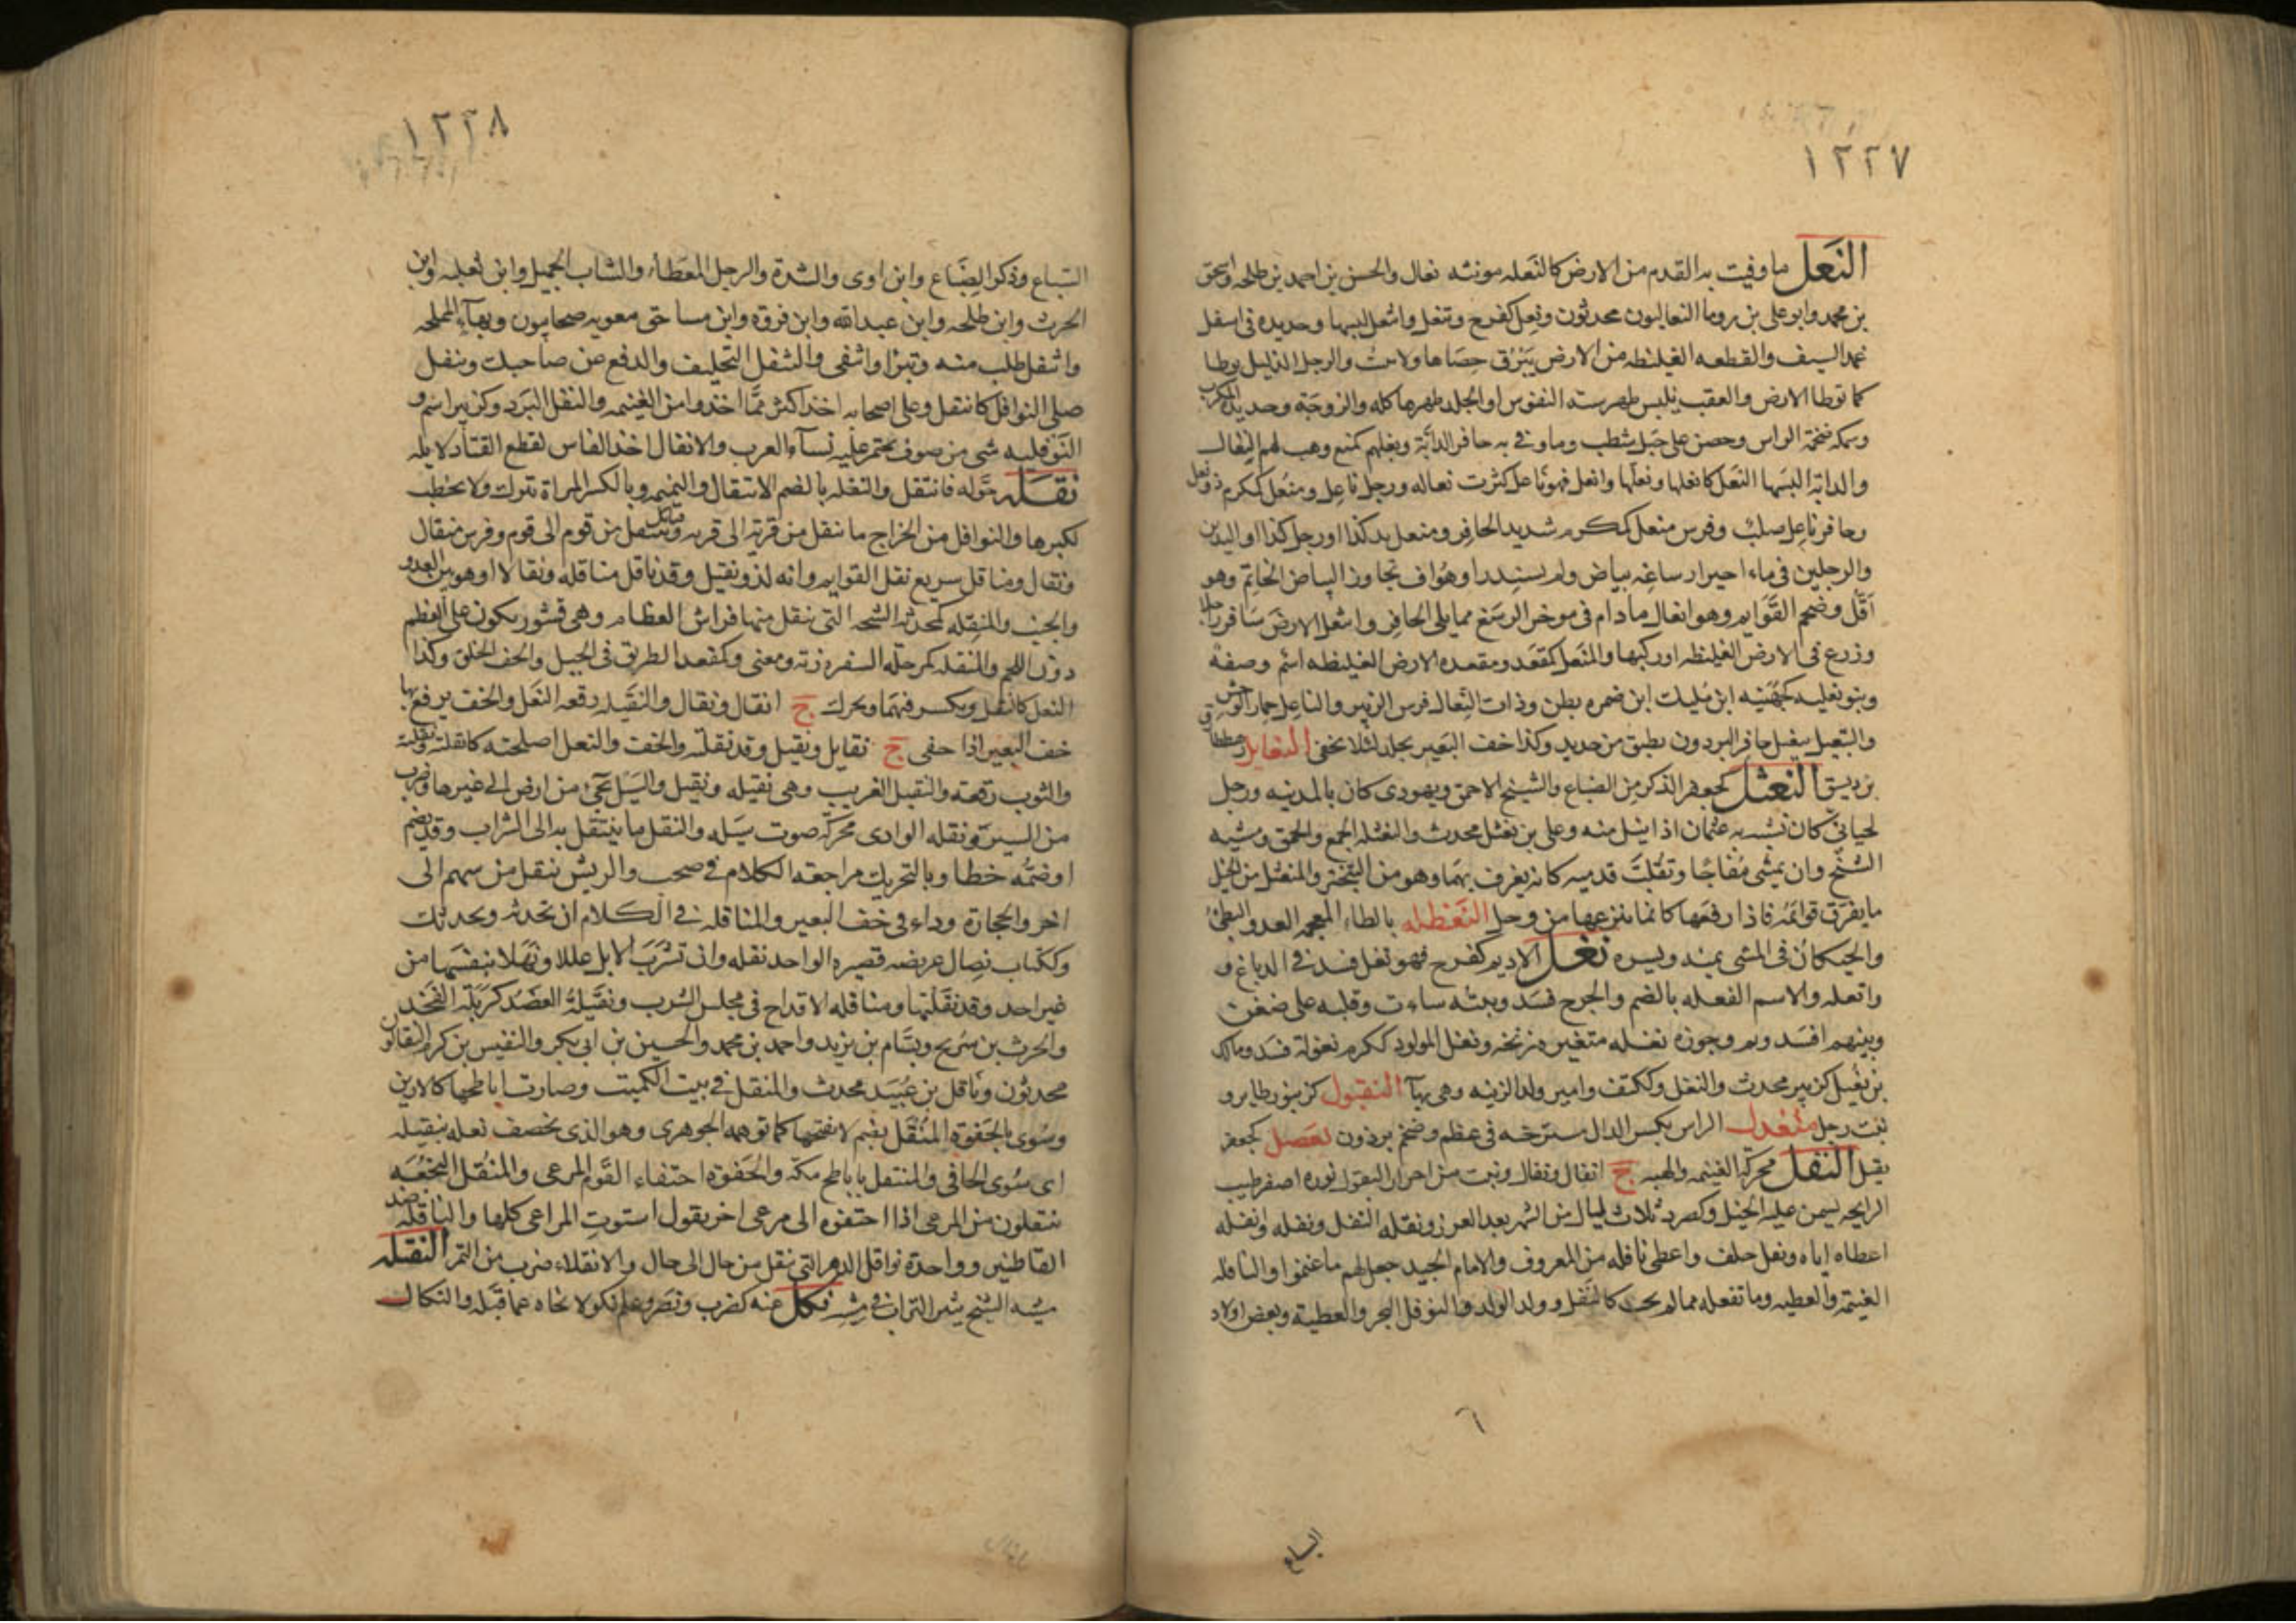 ١٢٢٧
النَعل ما وقيت به القدم من الارض كالنَعله مونثه نعال والحسن بن احمد بن طلحه واسحق
بن محمد وابو على بن دوما النعاليون محدثون ونعل كفرح وتنعل وانتعل لبسها وحديده فى اسفل
غمد السيف والقطعه الغليظه من الارض يَبْرُق حصَاها ولا تنبت والرجل الذليل يوطا
كما توطا الارض والعقب يلبس ظهر سية القوس او الجلد ظهرها كله والزوجَة وحديدة المكرب
وسمكه ضخمة الراس وحصن على جَبل شطب وما وقى به حافر الدابّة ونعلهم كمنع وهب لهم النِعال
والدابة البسَها النَعل كانعلها ونعلّها وانعل فهو ناعل كثرت نعاله ورجل ناعل ومنعَل كمكرم ذو نعل
وحافر ناعل صلب وفرس منعل كمكرم شديد الحافر ومنعل يد كذا او رجل كذا او اليدين
والرجلين فى ماء احيرار ساغه بياض ولم يستدر او هُو ان تجاوز البياض الخاتم وهو
اَقَلّ وضحِ القَوَايم وهو انعال ما دام فى موخر الرسَغ مما يلى الحافر وانتعل الارضَ سَافر راجلا
وزرع فى الارض الغليظه او ركبها والمنعَل كمقعَد ومقعده الارض الغليظه اسْم وصفة
وبنو نعليه كجُهَينه ابن مُليك ابن ضمره بطن وذات النِعال فرس الزبير والناعل حمار الوحش
والتنعيل تنعيل حافر البردون بطبق من حديد وكذا خف البَعير بجلد لئلا يحفى النعابل
بن ديسق النعثل كجعفر الذكر من الضباع والشيخ الاحمق ويهودى كان بالمدينه ورجل
لحيانىّ كان يشَبه به عثمان اذا نيل منه وعلى بن نعثل محدث والنعثله الجمع والحمق ومشيه
الشيخ وان يمشى مُفاجًا وتقلبَ قدميه كانه يغرف بهمَا وهو من التبختر والمنعثل من الخيل
ما يفرّق قوائمَه فاذا رفعَها كانما ينزعها من وحل النَعْظله بالظاء المعجمه العدو البطىء
والحيكان فى المشى يمنه ويسره نغل الاديم كفرح فهو نغل فسد فى الدباغ و
وانغله والاسم النغله بالضم والجرح فسَد ونيته ساءت وقلبه على ضغن
وبينهم افسَد ونم وجوزه نغله متغيره زنخه ونغل المولود ككرم نغولة فسَد ومالك
بن نُغَيل كزبير محدث والنغل وككتف وامير ولد الزنيه وهى بهآ النقبول كزنبور طاير و
نبت رجل منغدل الراس بكسر الدال مسترخيه فى عظم وضخم برذون نعضل كجعفر
ثقيل النفل محرّكة الغنيمه والهبه ج انفال ونفال ونبت من احرار البقول نوره اصفر طيب
الرايحه تسمن عليه الخيل وكصرد ثلاث ليال من الشهر بعد الغرر ونفله النفل ونفله وانفله
اعطاه اياه ونفل حلف واعطى نافله من المعروف والامام الجيد جعل لهم ما غنموا والنافله
الغنيمَة والعطيه وما تفعله مما لم يجب كالنفل وولد الولد والنوفل البحر والعطية وبعض اولاد
السباع
١٢٢٨
السَباع وذكر الضِبَاع وابن اوى والشدة والرجل المعَطاء والشاب الجميل وابن ثعلبه وابن
الحرث وابن طلحه وابن عبد الله وابن فروه وابن مساحق معويه صحابيون وبهآء المملحه
وانتفل طلب منه وتبرا وانتفى والتنفل التحليف والدفع عن صاحبك وتنفل
صلى النوافل كانتفل وعلى اصحابه اخذ اكثر ممَّا اخذوا من الغنيمه والنفل البَرَد وكزبير اسم و
النَوفليه شى من صوف تختمر عليه نسآء العرب والانفال اخذ الفاس لقطع القتاد لابله
نقَله حوّله فانتقل والنقله بالضم الانتقال والنميمه وبالكسر المراة تترك ولا تخطب
لكبرها والنوافل من الخراج ما ننقل من قرية الى قريه وقبائل تنتقل من قوم الى قوم وفرس منقال
ونقال ومناقل سريع نقل القوايم وانه لذو نقيل وقد ناقل مناقله ونقالا او هو بين العدو
والخبب والمنقِله كمحدثه الشجه التى تنقل منها فراش العظام وهى قشور تكون على العظم
دون اللحم والمنقله كمرحله السفره زنة ومعنى وكمقعد الطريق فى الجبل والخف الخلق وكذا
النعل كالنقل وبكسر فيهمَا ويحرك ج انقال ونقال والنَقيله رقعه النَعل والخف يرفع بها
خف البَعير اذا حفى ج نقايل ونقيل وقد نقلته والخف والنعل اصلحته كانقلته ونقلته
والثوب رقعته والنقيل الغريب وهى نقيله ونقيل والسَيْل يجىء من ارض الى غيرها وضرب
من السير ونقله الوادى محرّكة صوت سَيله والنقل ما يتنقل به الى الشراب وقد يضم
او ضمُّه خطا وبالتحريك مراجعة الكلام فى صخب والريش ننقل من سهم الى
اخر والحجارة وداء فى خف البعير والمناقله فى الكلام ان تحدثه ويحدثك
وككتاب نصِال عريضه قصيره الواحد نقله وان تشرَبَ الابل عللا ونَهَلا بنفسَها من
غير احد وقد نقلتها ومناقله الاقداح فى مجلس الشرب ونَقيلةُ العضَد كرَبلة الفخذ
والحرث بن سُريج وبسَّام بن يزيد واحمد بن محمد والحسين بن ابى بكر والنفيس بن كرم النقالون
محدثون وناقل بن عُبيَد محدث والمنقل فى بيت الكميت وصارت اباطحها كالارين
وسُوى بالحَفوة المُنقَل بضم لا بفتحها كما توهمه الجوهرى وهو الذى يخصف نعله بنقيله
اى سُوى الحافى والمنتعل باباطح مكّة والحَفوة احتفاء القَوم المرعى والمنُقل النجْعَة
ننتقلون من المرعى اذا احتفوه الى مرعى اخر يقول استوتِ المراعى كلها والناقله ضد
القاطنين وواحدة نواقل الدهر التى تنقل من حال الى حال والانقلاء ضرب من التمر النقثله
مشيه الشيخ يثير التراب فى مشيه نكل عنه كضرب ونصَر وعلم نكولا نخاه عما قبله والنكال